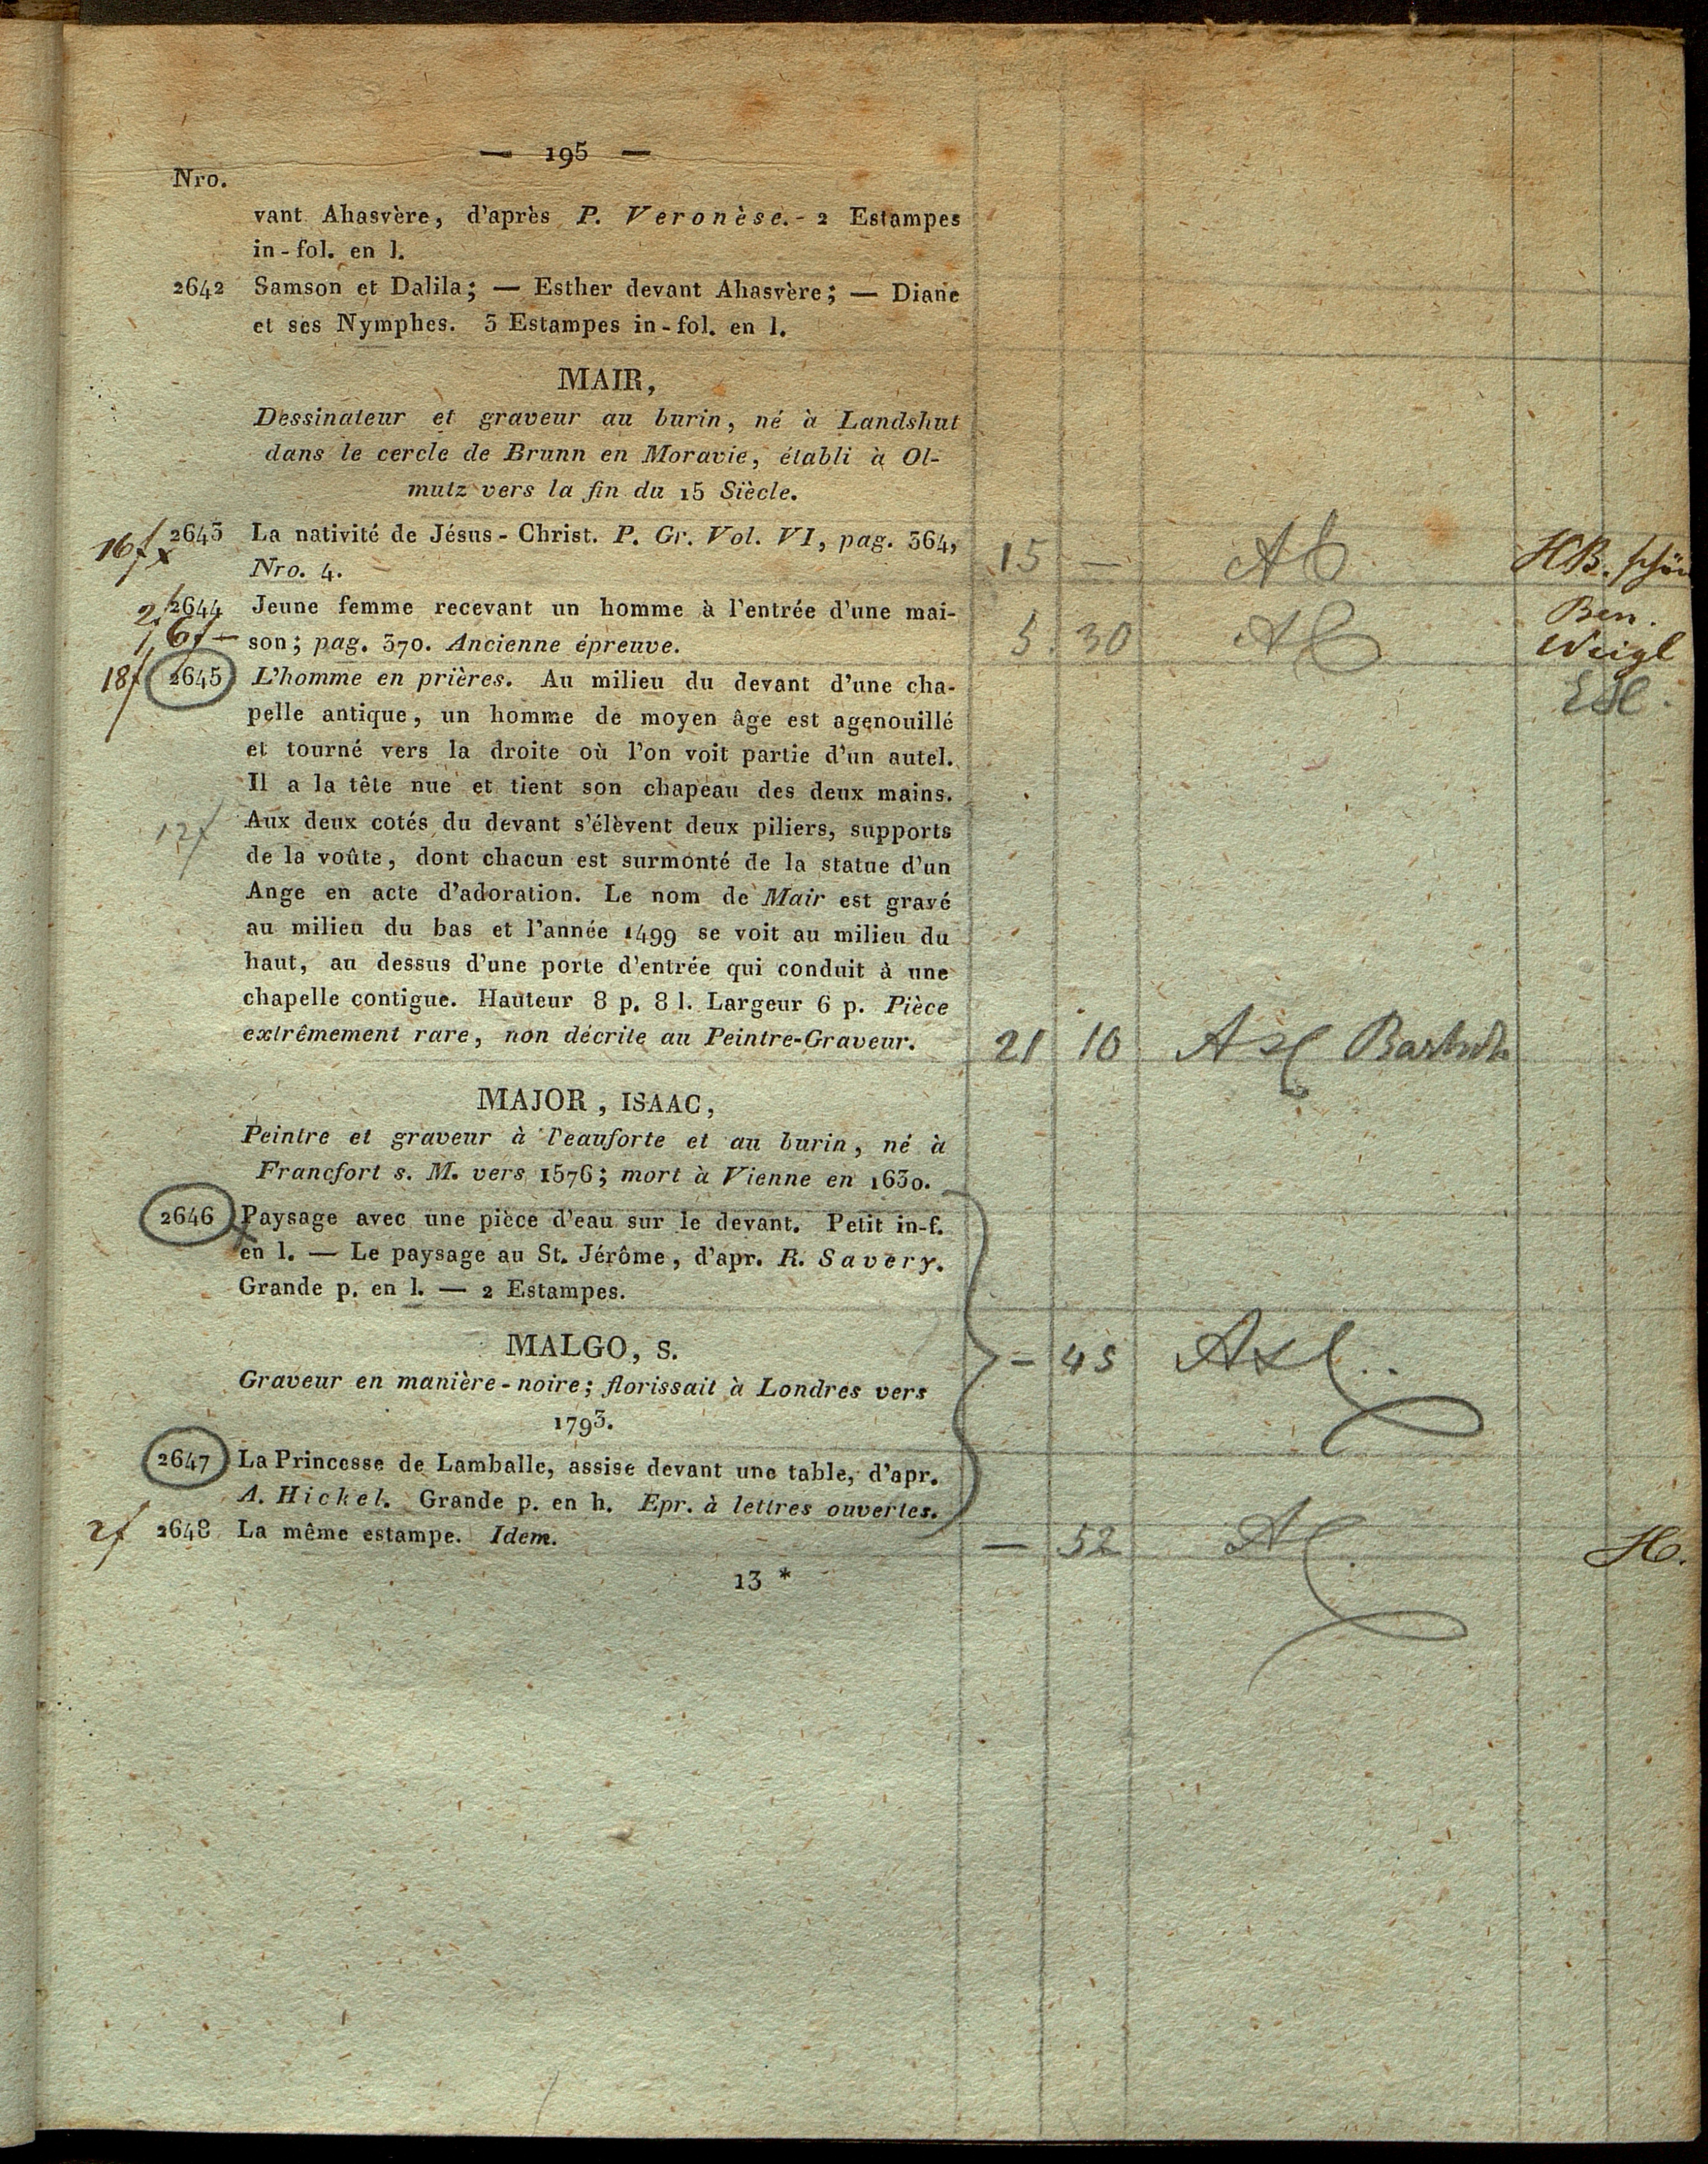 — 195 —
Nro.
vant Ahasvère, d'après P. Veronèse. - 2 Estampes
in-fol. en l.
2642 Samson et Dalila; — Esther devant Ahasvère; — Diane
et ses Nymphes. 3 Estampes in-fol. en l.
MAIR,
Dessinateur et graveur au burin, né à Landshut
dans le cercle de Brunn en Moravie, établi à Ol-
mutz vers la fin du 15 Siècle.
16f x 2643 La nativité de Jésus-Christ. P. Gr. Vol. VI, pag. 364, HB. schön
Nro. 4. 15 —
2f 2644 Jeune femme recevant un homme à l'entrée d'une mai- Ben.
6f — son; pag. 370. Ancienne épreuve. 5. 30 Weigl
18f 2645 L'homme en prières. Au milieu du devant d'une cha-
pelle antique, un homme de moyen âge est agenouillé
et tourné vers la droite où l'on voit partie d'un autel.
Il a la tête nue et tient son chapeau des deux mains.
12f Aux deux cotés du devant s'élèvent deux piliers, supports
de la voûte, dont chacun est surmonté de la statue d'un
Ange en acte d'adoration. Le nom de Mair est gravé
au milieu du bas et l'année 1499 se voit au milieu du
haut, au dessus d'une porte d'entrée qui conduit à une
chapelle contigue. Hauteur 8 p. 8 l. Largeur 6 p. Pièce
extrêmement rare, non décrite au Peintre-Graveur. 21 10 Bartsch
MAJOR, ISAAC,
Peintre et graveur à l'eauforte et au burin, né à
Francfort s. M. vers 1576; mort à Vienne en 1630.
2646 Paysage avec une pièce d'eau sur le devant. Petit in-f.
en l. — Le paysage au St. Jérôme, d'apr. R. Savery.
Grande p. en l. — 2 Estampes.
MALGO, S. — 45
Graveur en manière-noire; florissait à Londres vers
1793.
2647 La Princesse de Lamballe, assise devant une table, d'apr.
A. Hickel. Grande p. en h. Epr. à lettres ouvertes.
2f 2648 La même estampe. Idem. — 52 H.
13 *